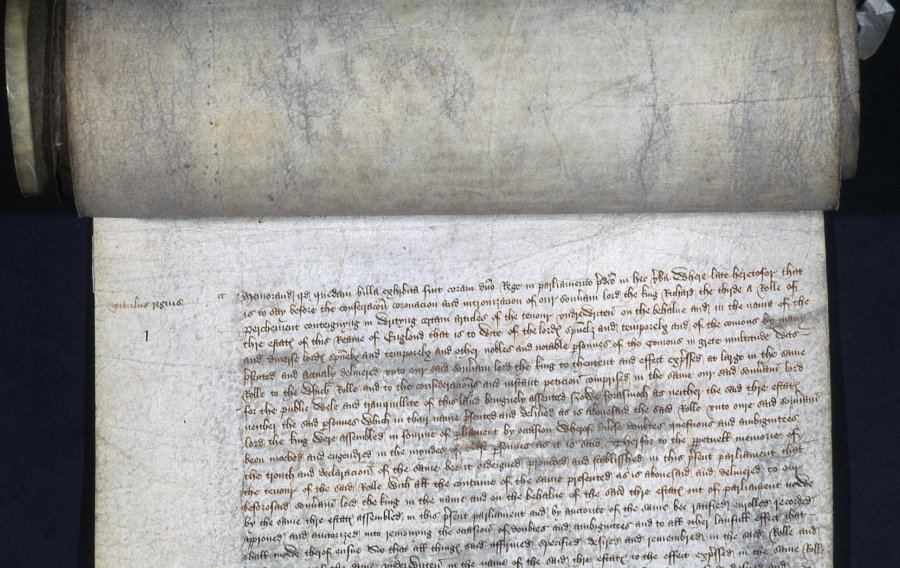 titulus regius
Memorand qd quedam billa exhibita fuit coram dno Rege in parliamento pdco in hec vba Where late heretofor that
is to say before the consecracion coronacion and intronizacion of oure souveraine lord the king Richard the thirde a Rolle of
perchement conteignyng in writyng certain articles of the tenour undrewriten on the behalve and in the name of the
thre estates of this Reame of Englond that is to wite of the lordes spuelx and temporelx and of the comons by many
and diverse lordes spuelx and temporelx and other nobles and notable psones of the comons in grete multitude was
psented and actualy delivered unto oure said souverain lord the king to thentent and effect expressed at large in the same
Rolle to the which Rolle and to the consideracions and instant peticion comprised in the same our said souverain lord
for the public wele and tranquillite of this land benyngly assented Nowe forasmoch as neither the said thre estates
neither the said psones which in thair name psented and delivered as is abovesaid the said Rolle unto oure said souverain
lord the king were assembled in fourme of parliament by occasion wherof diverse doubtes questions and ambiguitees
been moved and engendred in the myndes of psones as it is said Therfor to the ppetuell memorie of
the trouth and declaracion of the same bee it ordeigned provided and stablisshed in this psent parliament that
the tenour of the said Rolle with all the contynue of the same presented as is abovesaid and delivered to our
beforesaid souverain lord the king in the name and on the behalve of the said thre estates out of parliament nowe
by the same thre estates assembled in this psent parliament and by auctorite of the same bee ratified enrolled recorded
approved and auctorized into removyng the occasion of doubtes and ambiguitees and to all other laufull effect that
shall mowe therof ensue So that all things said affirmed specified desired and remembred in the said Rolle and
in the same undrewriten in the name of the said thre estates to the effect expressed in the same Rolle